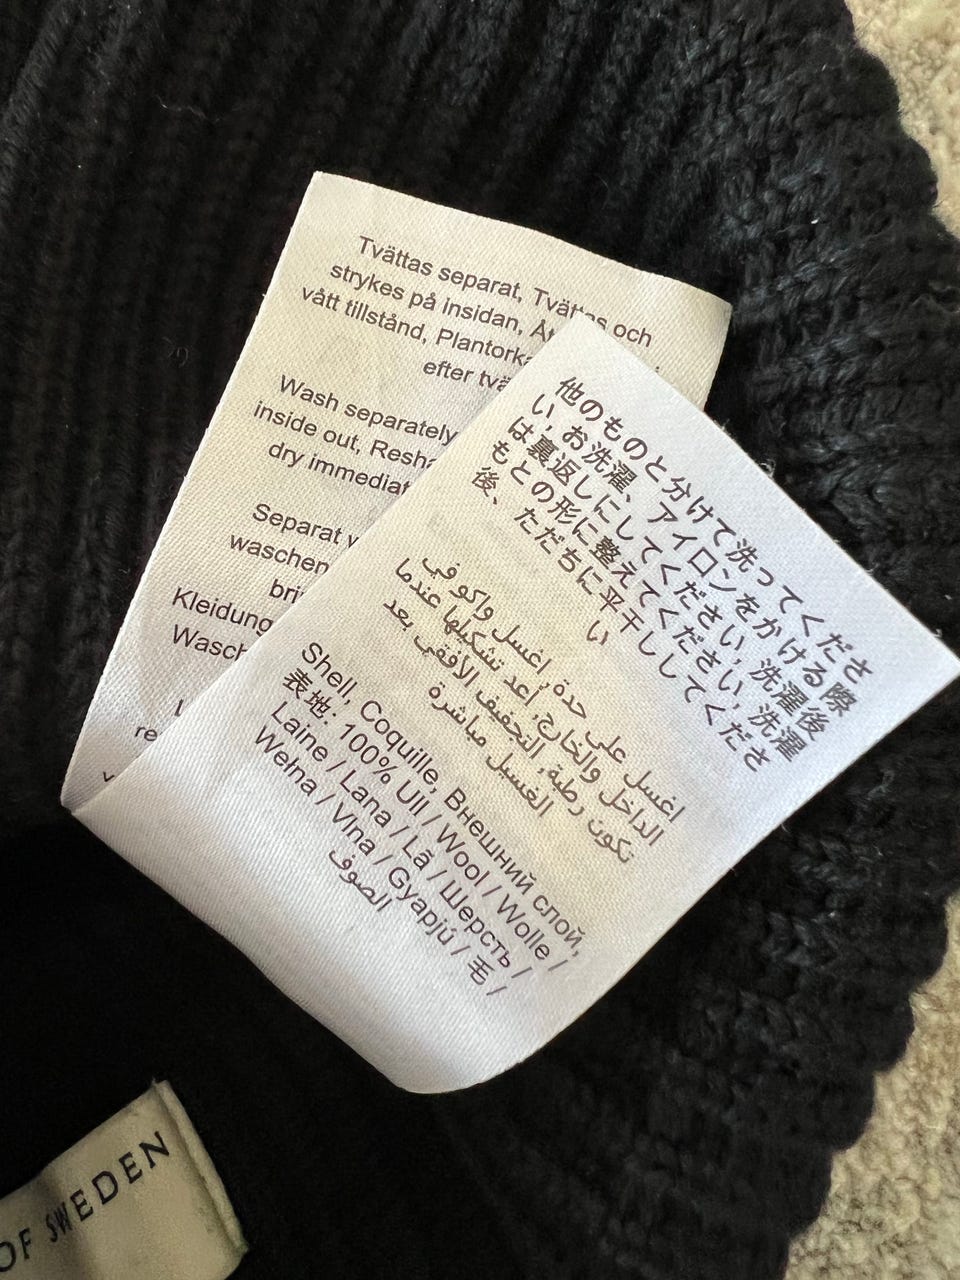 Tvättas separat, Tvättas och
strykes på insidan,
vått tillstånd,
efter
Wash separately
inside out,
dry
Separat
waschen
他のものと分けて洗ってくださ
い, お洗濯、アイロンをかける際
は裏返しにしてください, 洗濯後
もとの形に整えてください, 洗濯
後、ただちに平干ししてくださ
い
اغسل على حدة, إغسل واكو في
الداخل والخارج, أعد تشكيلها عندما
تكون رطبة, التجفيف الأفقي بعد
الغسيل مباشرة
Shell, Coquille, Внешний слой,
表地: 100% Ull / Wool / Wolle /
Laine / Lana / Lã / Шерсть /
Wełna / Vlna / Gyapjú / 毛 /
الصوف
OF SWEDEN